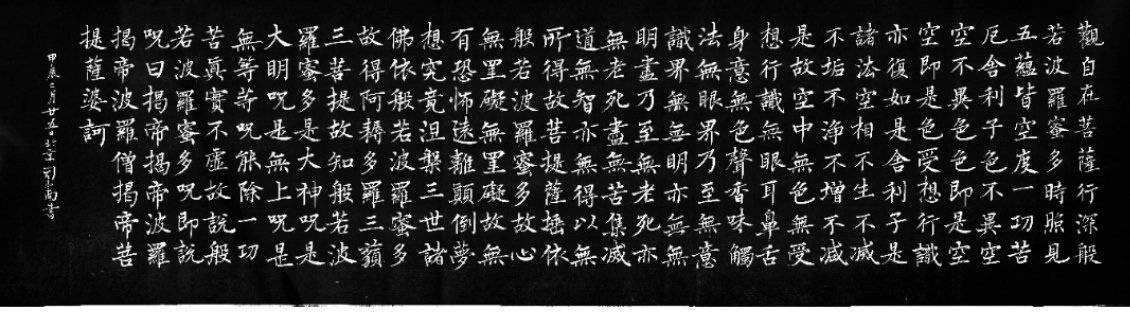 觀自在菩薩行深般
若波羅蜜多時照見
五蘊皆空度一切苦
厄舍利子色不異空
空不異色色即是空
空即是色受想行識
亦復如是舍利子是
諸法空相不生不滅
不垢不淨不增不減
是故空中無色無受
想行識無眼耳鼻舌
身意無色聲香味觸
法無眼界乃至無意
識界無無明亦無無
明盡乃至無老死亦
無老死盡無苦集滅
道無智亦無得以無
所得故菩提薩埵依
般若波羅蜜多故心
無罣礙無罣礙故無
有恐怖遠離顛倒夢
想究竟涅槃三世諸
佛依般若波羅蜜多
故得阿耨多羅三藐
三菩提故知般若波
羅蜜多是大神呪是
大明呪是無上呪是
無等等呪能除一切
苦眞實不虛故說般
若波羅蜜多呪即說
呪曰揭帝揭帝波羅
揭帝波羅僧揭帝菩
提薩婆訶
甲辰月廿五日北京司尚書